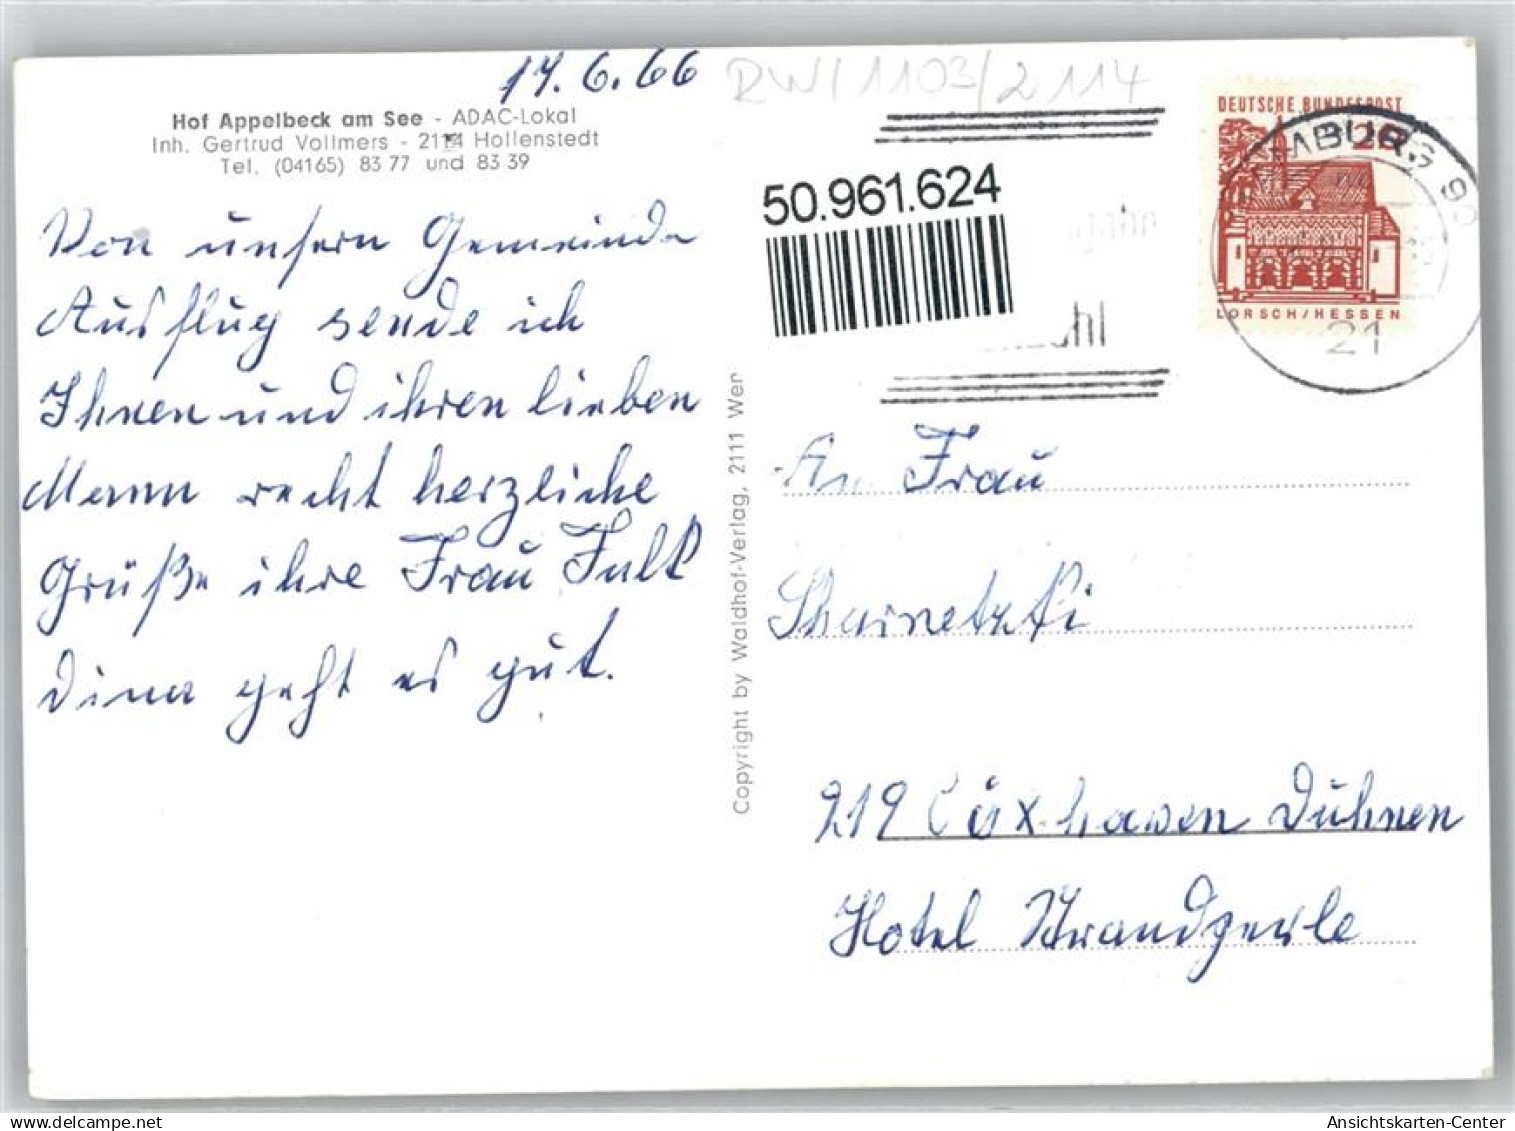 17.6.66
RW/1103/2114
Hof Appelbeck am See - ADAC-Lokal
Inh. Gertrud Vollmers - 2114 Hollenstedt
Tel. (04165) 83 77 und 83 39
Von unsern Gemeinde
Ausflug sende ich
Ihnen und ihren lieben
Mann recht herzliche
Grüße ihre Frau Falk
Dina geht es gut.
Copyright by Waldhof-Verlag, 2111 Wen
50.961.624
DEUTSCHE BUNDESPOST
20
LORSCH/HESSEN
MBURG 90
21
An Frau
Scharnetzki
219 Cuxhaven Duhnen
Hotel Strandperle
Ansichtskarten-Center